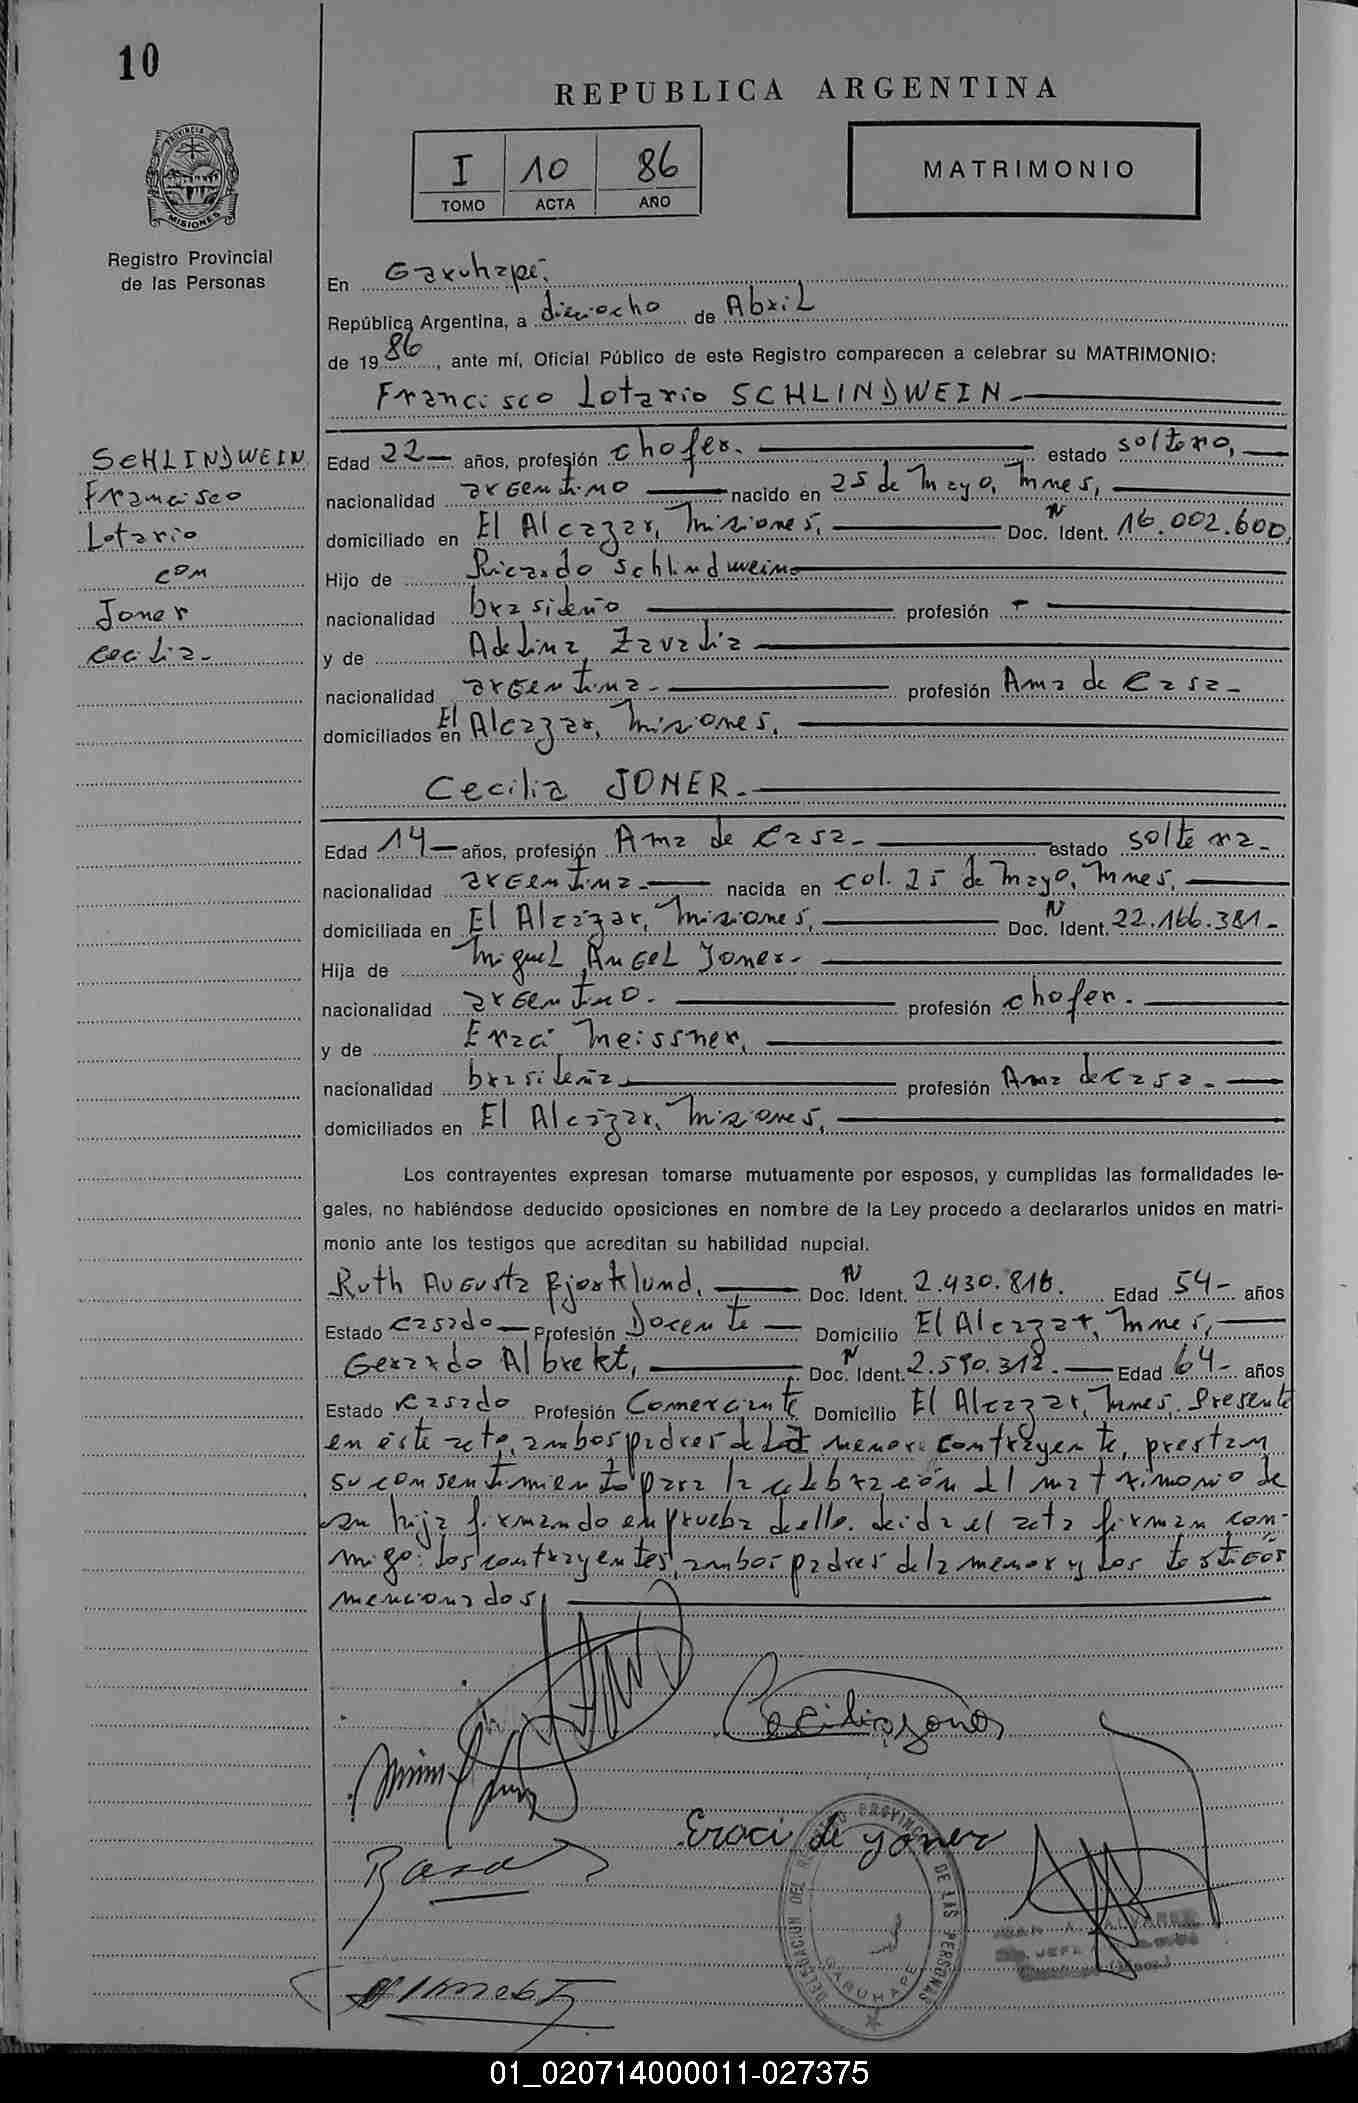 10
REPUBLICA ARGENTINA
I 10 86
TOMO ACTA AÑO
MATRIMONIO
PROVINCIA DE MISIONES
Registro Provincial
de las Personas
En Garuhapé.
República Argentina, a dieciocho de Abril
de 19 86, ante mí, Oficial Público de este Registro comparecen a celebrar su MATRIMONIO:
Francisco Lotario SCHLINDWEIN.
SCHLINDWEIN
Francisco
Lotario
con
Joner
Cecilia.
Edad 22 años, profesión chofer. estado soltero,
nacionalidad argentino nacido en 25 de Mayo, Mnes,
domiciliado en El Alcazar, Misiones, Doc. N Ident. 16.002.600,
Hijo de Ricardo Schlindwein
nacionalidad brasileño profesión -
y de Adelina Zavalia
nacionalidad argentina. profesión Ama de Casa.
domiciliados en El Alcazar, Misiones,
Cecilia JONER.
Edad 14 años, profesión Ama de Casa. estado soltera.
nacionalidad argentina. nacida en col. 25 de Mayo, Mnes,
domiciliada en El Alcázar, Misiones, Doc. N Ident. 22.166.381.
Hija de Miguel Angel Joner.
nacionalidad argentino. profesión chofer.
y de Eraci Meissner,
nacionalidad brasileña profesión Ama de Casa.
domiciliados en El Alcázar, Misiones,
Los contrayentes expresan tomarse mutuamente por esposos, y cumplidas las formalidades le-
gales, no habiéndose deducido oposiciones en nombre de la Ley procedo a declararlos unidos en matri-
monio ante los testigos que acreditan su habilidad nupcial.
Ruth Augusta Bjorklund, Doc. N Ident. 2.930.816. Edad 54 años
Estado casado Profesión Docente Domicilio El Alcazar, Mnes,
Gerardo Albrekt, Doc. N Ident. 2.590.312. Edad 64 años
Estado casado Profesión Comerciante Domicilio El Alcazar, Mnes. Presente
en éste acto, ambos padres de la menor contrayente, prestan
su consentimiento para la celebración del matrimonio de
su hija firmando en prueba de ello. leida el acta firman con-
migo: los contrayentes, ambos padres de la menor y los testigos
mencionados,
Cecilia Joner
Eraci de Joner
DELEGACION DEL REGISTRO PROVINCIAL DE LAS PERSONAS
GARUHAPE
JUAN A. ALVAREZ
01_020714000011-027375